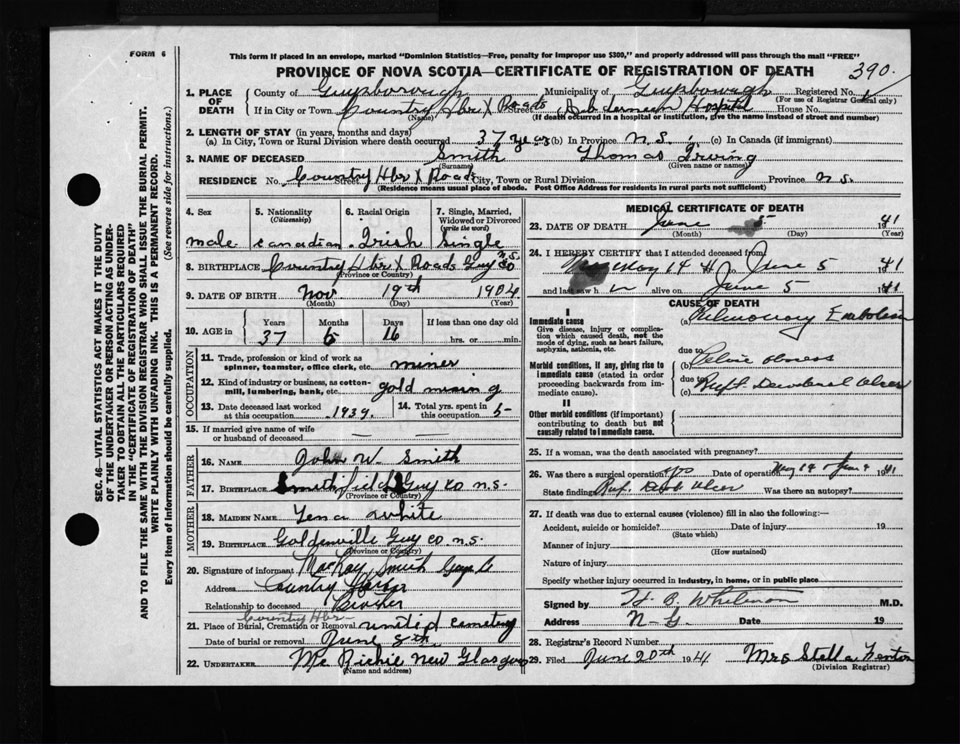 FORM 6
This form if placed in an envelope, marked "Dominion Statistics—Free, penalty for improper use $300," and properly addressed will pass through the mail "FREE"
PROVINCE OF NOVA SCOTIA—CERTIFICATE OF REGISTRATION OF DEATH
390
1. PLACE OF DEATH
County of Guysborough Municipality of Guysborough Registered No.
(For use of Registrar General only)
If in City or Town Country Hbr X Roads Street Hospital House No.
(Name) (If death occurred in a hospital or institution, give the name instead of street and number)
2. LENGTH OF STAY (in years, months and days)
(a) In City, Town or Rural Division where death occurred 37 years (b) In Province N.S. (c) In Canada (if immigrant)
3. NAME OF DECEASED Smith Thomas Irving
(Surname) (Given name or names)
RESIDENCE No. Country Hbr X Roads Street City, Town or Rural Division Province N.S.
(Residence means usual place of abode. Post Office Address for residents in rural parts not sufficient)
4. Sex male
5. Nationality (Citizenship) Canadian
6. Racial Origin Irish
7. Single, Married, Widowed or Divorced (write the word) Single
8. BIRTHPLACE Country Hbr X Roads Guy Co N.S.
(Province or Country)
9. DATE OF BIRTH Nov. 19th 1904
(Month) (Day) (Year)
10. AGE in Years 37 Months 6 Days 16 If less than one day old hrs. or min.
OCCUPATION
11. Trade, profession or kind of work as spinner, teamster, office clerk, etc. miner
12. Kind of industry or business, as cotton-mill, lumbering, bank, etc. gold mining
13. Date deceased last worked at this occupation 1939.
14. Total yrs. spent in this occupation 5
15. If married give name of wife or husband of deceased — —
FATHER
16. NAME John W. Smith
17. BIRTHPLACE Smithfield Guy Co N.S.
(Province or Country)
MOTHER
18. MAIDEN NAME Lena White
19. BIRTHPLACE Goldenville Guy Co N.S.
(Province or Country)
20. Signature of informant MacKay Smith Guys Co
Address Country Harbor
Relationship to deceased Brother
21. Place of Burial, Cremation or Removal Country Hbr united cemetery
Date of burial or removal June 8th
22. UNDERTAKER Mc Richie New Glasgow
(Name and address)
MEDICAL CERTIFICATE OF DEATH
23. DATE OF DEATH June 5 1941
(Month) (Day) (Year)
24. I HEREBY CERTIFY that I attended deceased from
May 14 41 to June 5 1941
and last saw h im alive on June 5 1941
CAUSE OF DEATH
I
Immediate cause
Give disease, injury or complication which caused death, not the mode of dying, such as heart failure, asphyxia, asthenia, etc.
(a) Pulmonary Embolism
due to
Morbid conditions, if any, giving rise to immediate cause (stated in order proceeding backwards from immediate cause).
(b) Pelvic abscess
due to
(c) Rupt Duodenal Ulcer
II
Other morbid conditions (if important) contributing to death but not causally related to immediate cause.
25. If a woman, was the death associated with pregnancy?
26. Was there a surgical operation? yes Date of operation May 14 1941
State findings Rup. Ulcer Was there an autopsy?
27. If death was due to external causes (violence) fill in also the following:—
Accident, suicide or homicide? Date of injury 19
(State which)
Manner of injury
(How sustained)
Nature of injury
Specify whether injury occurred in industry, in home, or in public place
Signed by B. Whitman M.D.
Address N. G. Date 19
28. Registrar's Record Number
29. Filed June 20th 1941 Mrs Stella Fenton
(Division Registrar)
SEC. 46—VITAL STATISTICS ACT MAKES IT THE DUTY
OF THE UNDERTAKER OR PERSON ACTING AS UNDER-
TAKER TO OBTAIN ALL THE PARTICULARS REQUIRED
IN THE "CERTIFICATE OF REGISTRATION OF DEATH"
AND TO FILE THE SAME WITH THE DIVISION REGISTRAR WHO SHALL ISSUE THE BURIAL PERMIT.
WRITE PLAINLY WITH UNFADING INK. THIS IS A PERMANENT RECORD.
Every item of information should be carefully supplied. (See reverse side for instructions.)